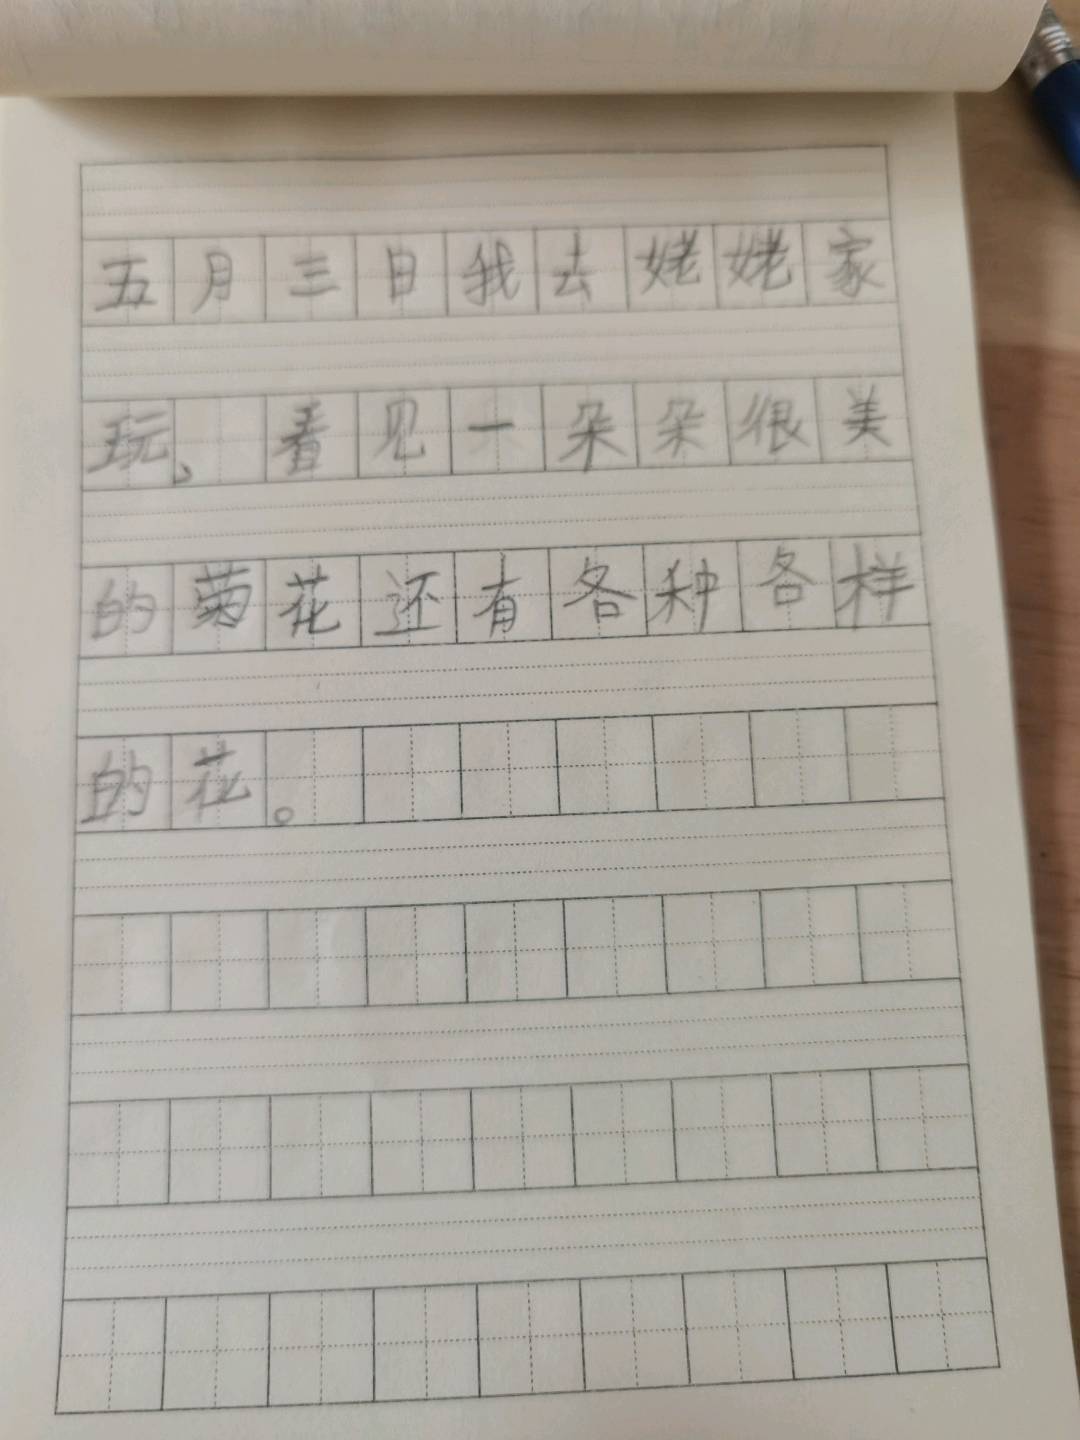 五月三日我去姥姥家
玩，看见一朵朵很美
的菊花还有各种各样
的花。